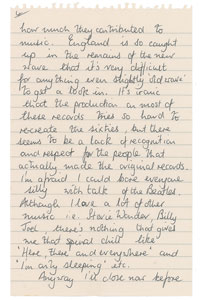 how much they contributed to
music. England is so caught
up in the remains of the new
wave that it's very difficult
for anything even slightly old wave
to get a look in. It's ironic
that the production on most of
these records tries so hard to
recreate the sixties, but there
seems to be a lack of recognition
and respect for the people that
actually made the original records.
I'm afraid I could bore everyone
silly with talk of the Beatles.
Although I love a lot of other
music i.e. Stevie Wonder, Billy
Joel, there's nothing that gives
me that special chill like
'Here, there and everywhere' and
'I'm only sleeping' etc.
Anyway I'll close now before